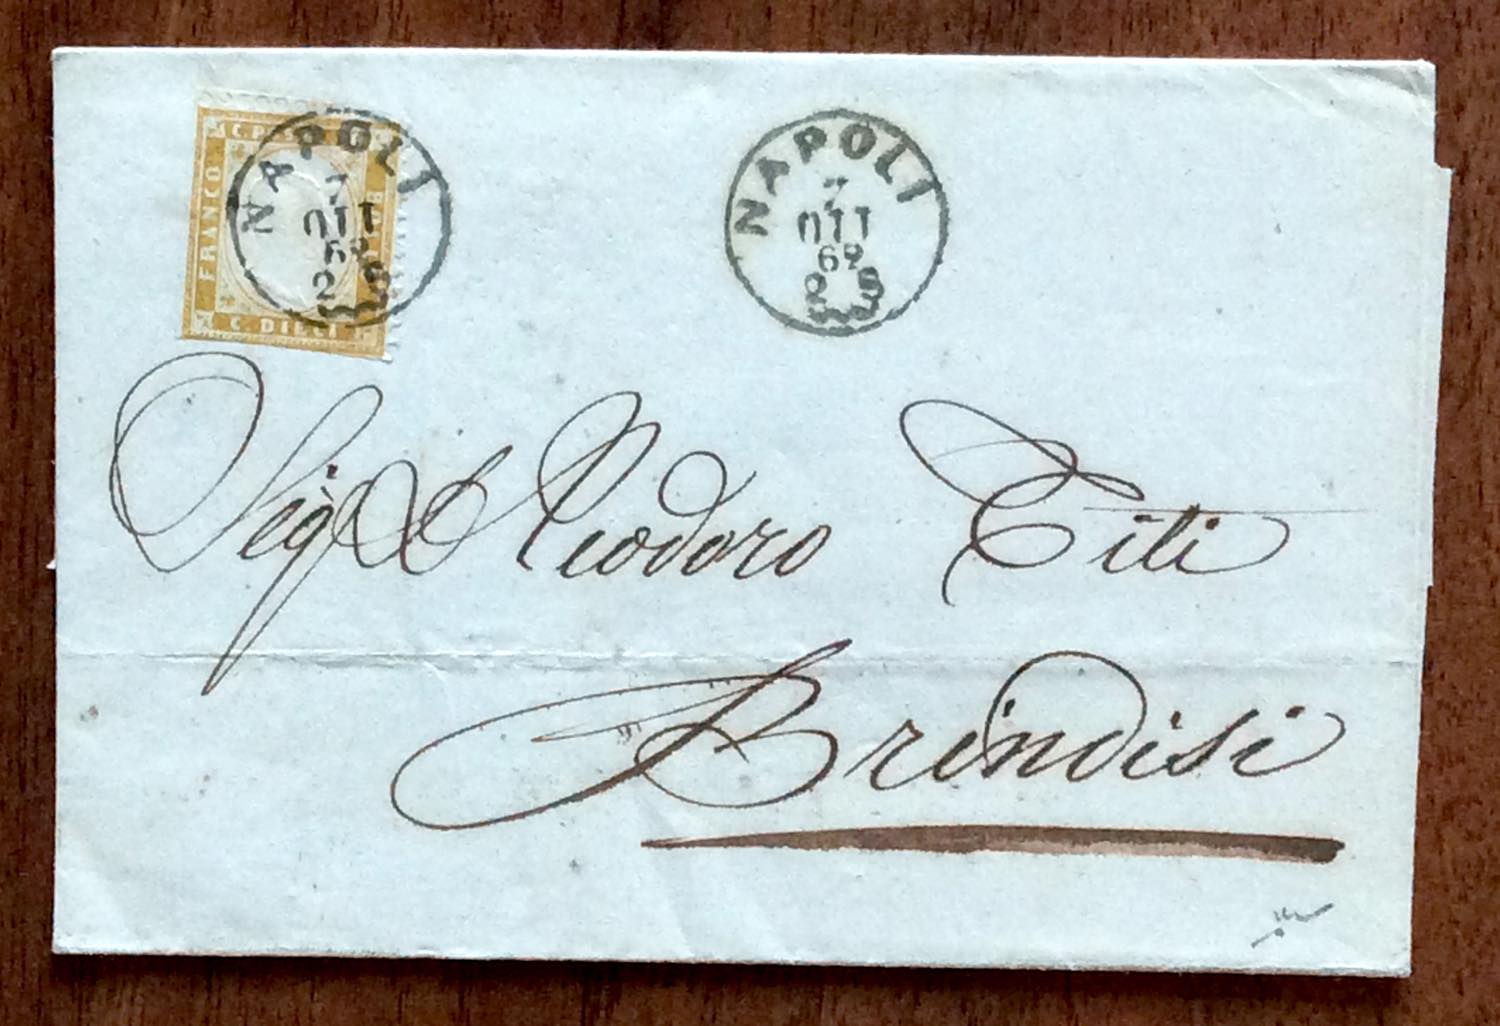 C. POSTE
FRANCO
C. DIECI
NAPOLI
7
OTT
62
2 S
NAPOLI
7
OTT
62
2 S
Sig.r D. Teodoro Titi
Brindisi